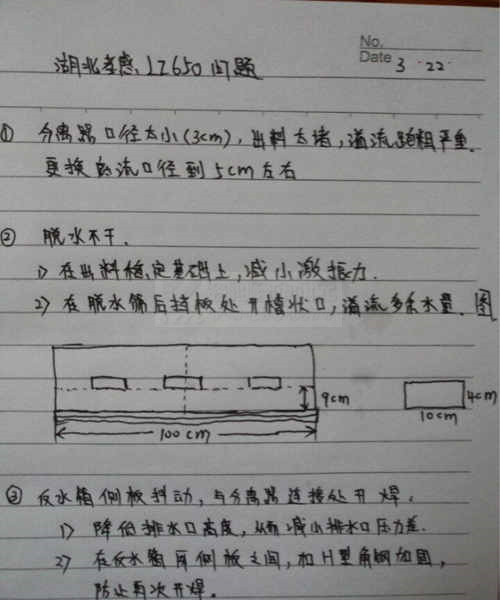 No.
Date 3 · 22 ·
湖北孝感 LZ650 问题
① 分离器口径太小(3cm), 出料太堵, 溢流跑粗严重.
更换 流口径到 5cm 左右
② 脱水不干.
1) 在出料稳定基础上, 减小激振力.
2) 在脱水筛后挡板处开槽状口, 溢流多余水量. 图
9cm
4cm
10cm
100 cm
③ 反水箱侧板抖动, 与分离器连接处开焊.
1) 降低排水口高度, 从而减小排水口压力差.
2) 在反水箱两侧板之间, 加H型角钢加固,
防止再次开焊.